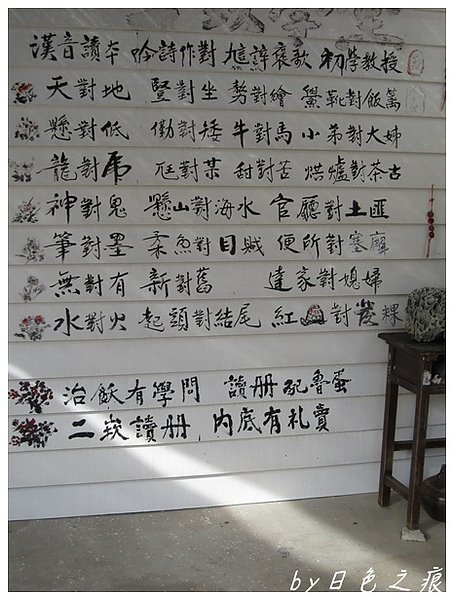 漢音讀本 吟詩作對 尪諄哀歌 初学教授
天對地 豎對坐 勢對繪 鱟靴對飯篱
懸對低 働對矮 牛對馬 小弟對大姊
龍對虎 尫對某 甜對苦 烘爐對茶古
神對鬼 懸山對海水 官廳對土匪
筆對墨 柔魚對目賊 便所對塞廨
無對有 新對舊 達家對媳婦
水對火 起頭對結尾 紅龜對發粿
治飫有學問 讀册配魯蛋
二崁讀册 內底有札賣
by日色之痕